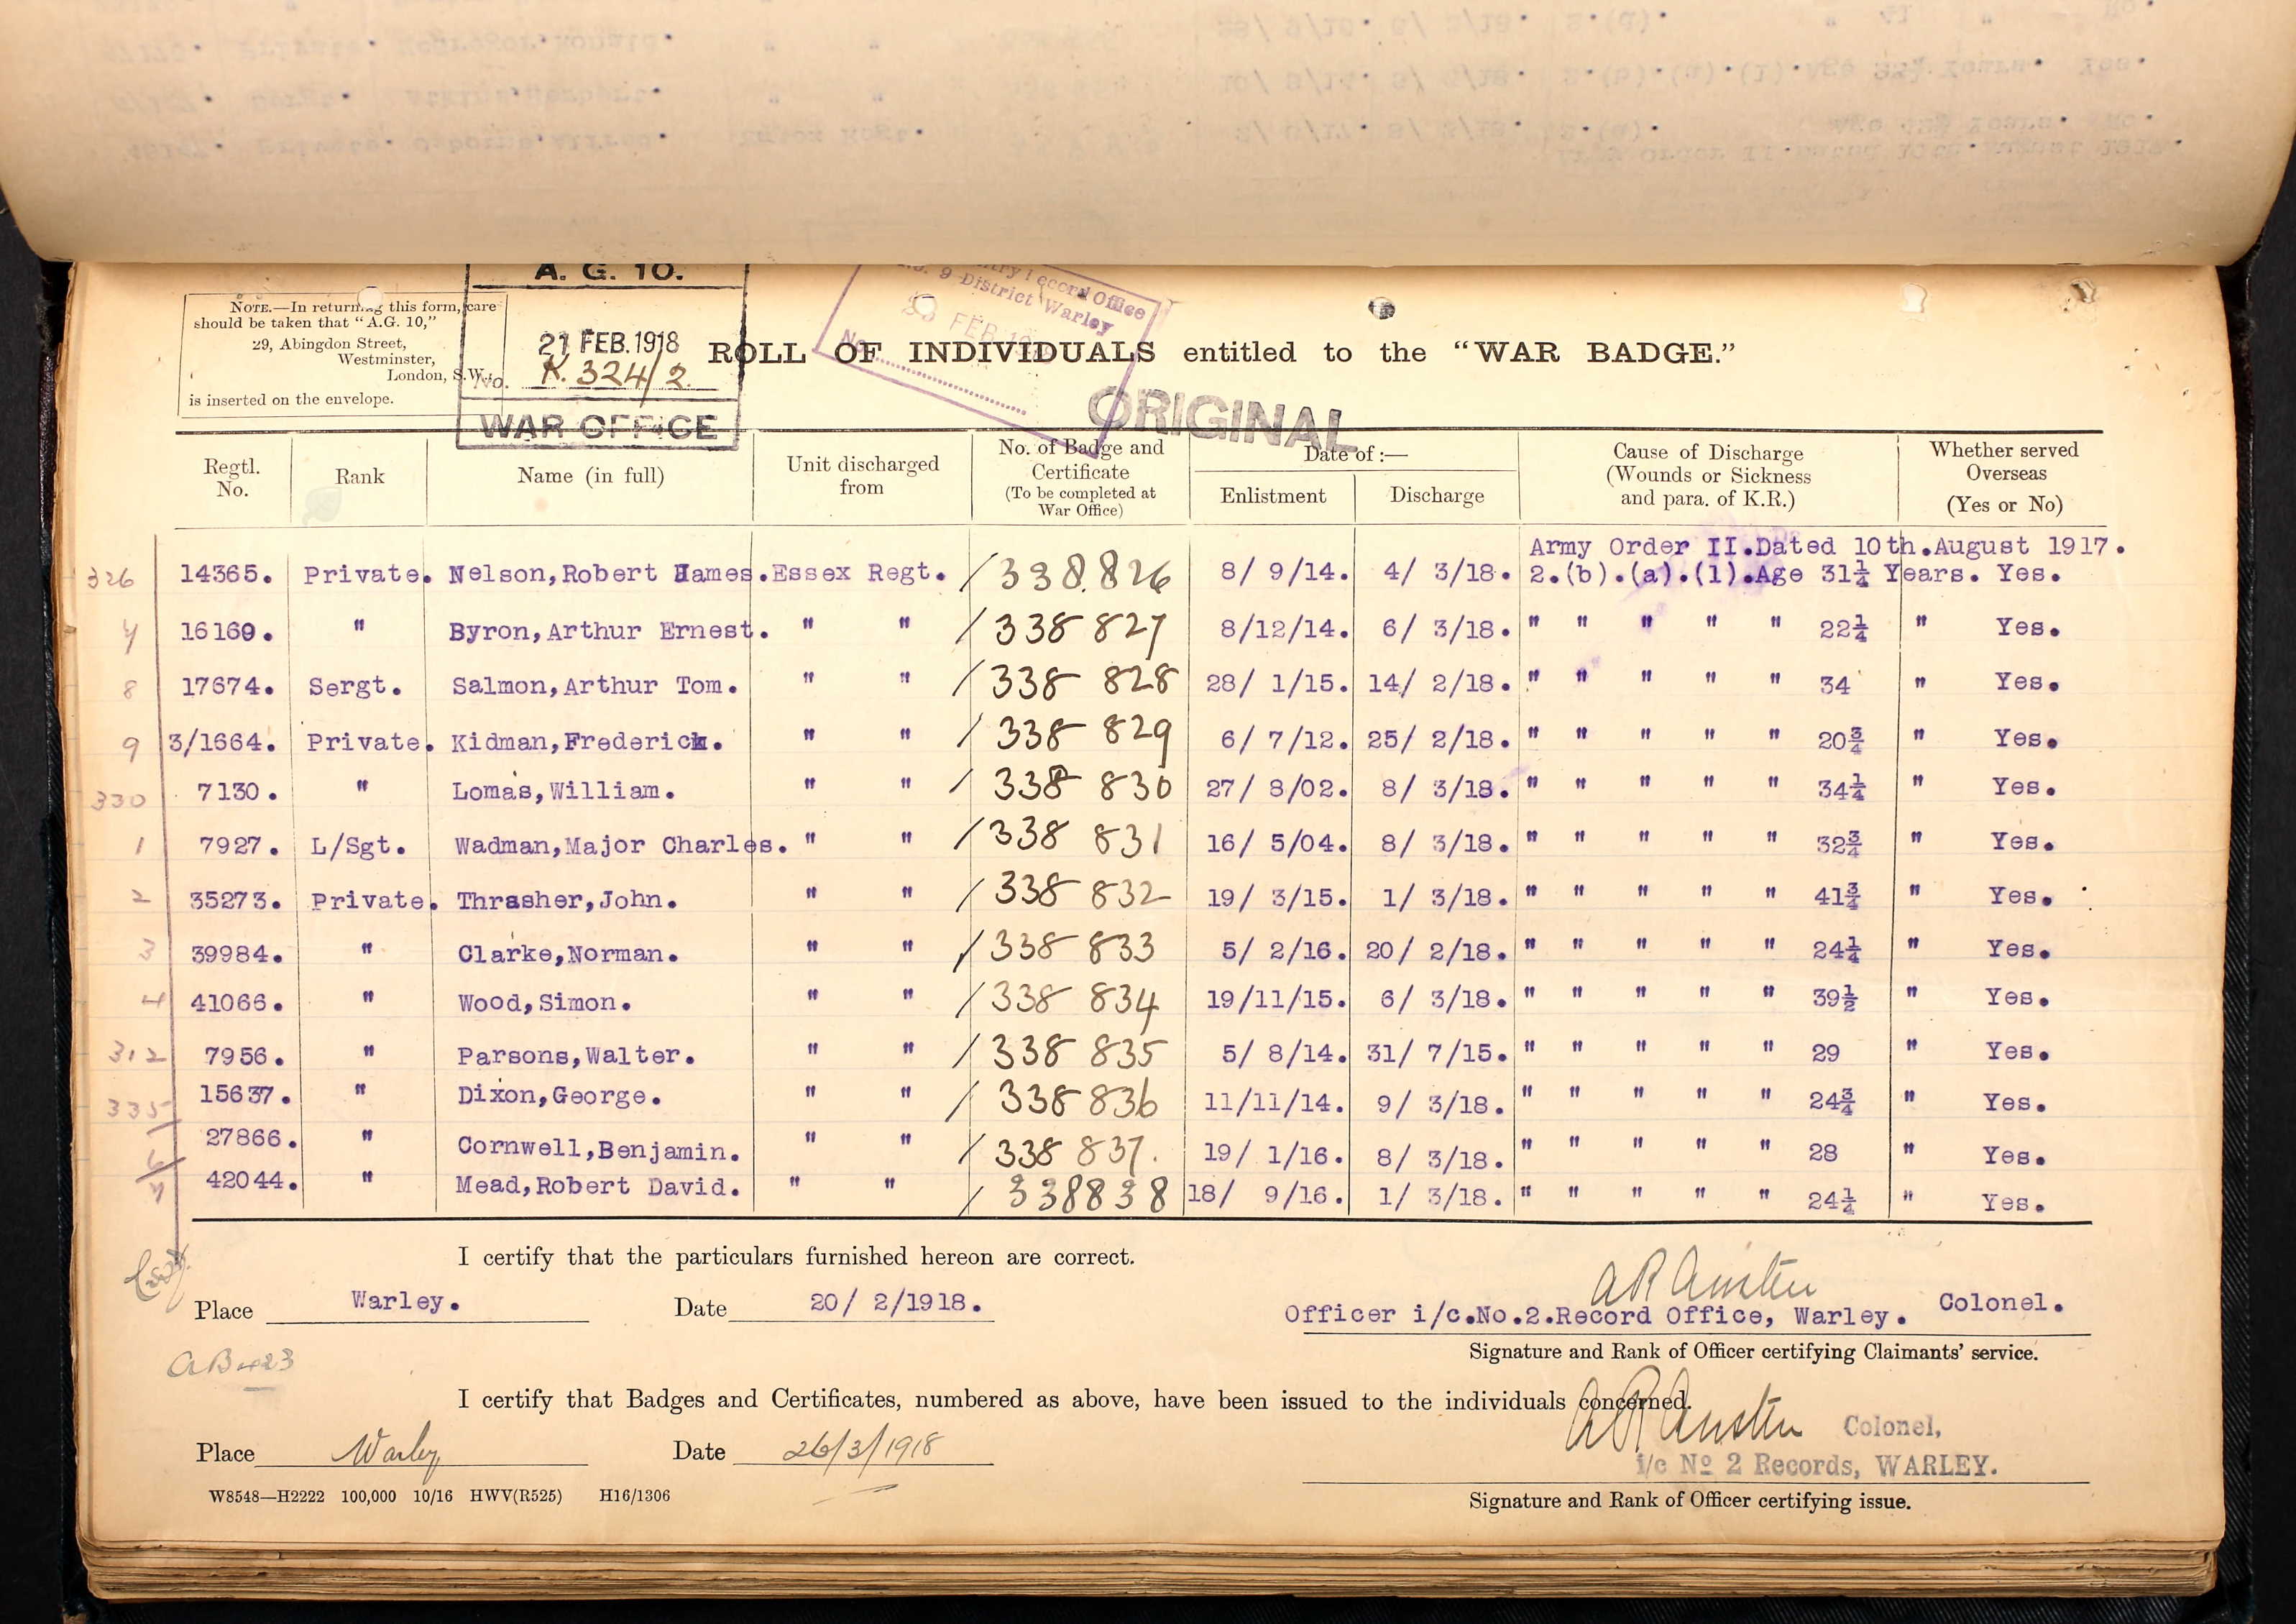 A. G. 10.
NOTE.—In returning this form, care
should be taken that "A.G. 10,"
29, Abingdon Street,
Westminster,
London, S.W.,
is inserted on the envelope.
21 FEB. 1918
No. K. 324/2.
WAR OFFICE
Record Office
9 District Warley
FEB
No.
ROLL OF INDIVIDUALS entitled to the "WAR BADGE."
ORIGINAL
Regtl. No. Rank Name (in full) Unit discharged from No. of Badge and Certificate (To be completed at War Office) Date of :— Enlistment Discharge Cause of Discharge (Wounds or Sickness and para. of K.R.) Whether served Overseas (Yes or No)
Army Order II.Dated 10th.August 1917.
326 14365. Private. Nelson,Robert James. Essex Regt. / 338.826 8/ 9/14. 4/ 3/18. 2.(b).(a).(1).Age 31¼ Years. Yes.
7 16160. " Byron,Arthur Ernest. " " / 338 827 8/12/14. 6/ 3/18. " " " " " 22¼ " Yes.
8 17674. Sergt. Salmon,Arthur Tom. " " / 338 828 28/ 1/15. 14/ 2/18. " " " " " 34 " Yes.
9 3/1664. Private. Kidman,Frederick. " " / 338 829 6/ 7/12. 25/ 2/18. " " " " " 20¾ " Yes.
330 7130. " Lomas,William. " " / 338 830 27/ 8/02. 8/ 3/18. " " " " " 34¼ " Yes.
1 7927. L/Sgt. Wadman,Major Charles. " " / 338 831 16/ 5/04. 8/ 3/18. " " " " " 32¾ " Yes.
2 35273. Private. Thrasher,John. " " / 338 832 19/ 3/15. 1/ 3/18. " " " " " 41¾ " Yes.
3 39984. " Clarke,Norman. " " / 338 833 5/ 2/16. 20/ 2/18. " " " " " 24¼ " Yes.
4 41066. " Wood,Simon. " " / 338 834 19/11/15. 6/ 3/18. " " " " " 39½ " Yes.
312 7956. " Parsons,Walter. " " / 338 835 5/ 8/14. 31/ 7/15. " " " " " 29 " Yes.
335 15637. " Dixon,George. " " / 338 836 11/11/14. 9/ 3/18. " " " " " 24¾ " Yes.
6 27866. " Cornwell,Benjamin. " " / 338 837. 19/ 1/16. 8/ 3/18. " " " " " 28 " Yes.
7 42044. " Mead,Robert David. " " / 338838 18/ 9/16. 1/ 3/18. " " " " " 24¼ " Yes.
I certify that the particulars furnished hereon are correct.
AR Austen
Place Warley. Date 20/ 2/1918. Officer i/c.No.2.Record Office, Warley. Colonel.
Signature and Rank of Officer certifying Claimants' service.
I certify that Badges and Certificates, numbered as above, have been issued to the individuals concerned.
AR Austen Colonel,
Place Warley Date 26/3/1918 i/c No 2 Records, WARLEY.
W8548—H2222 100,000 10/16 HWV(R525) H16/1306
Signature and Rank of Officer certifying issue.